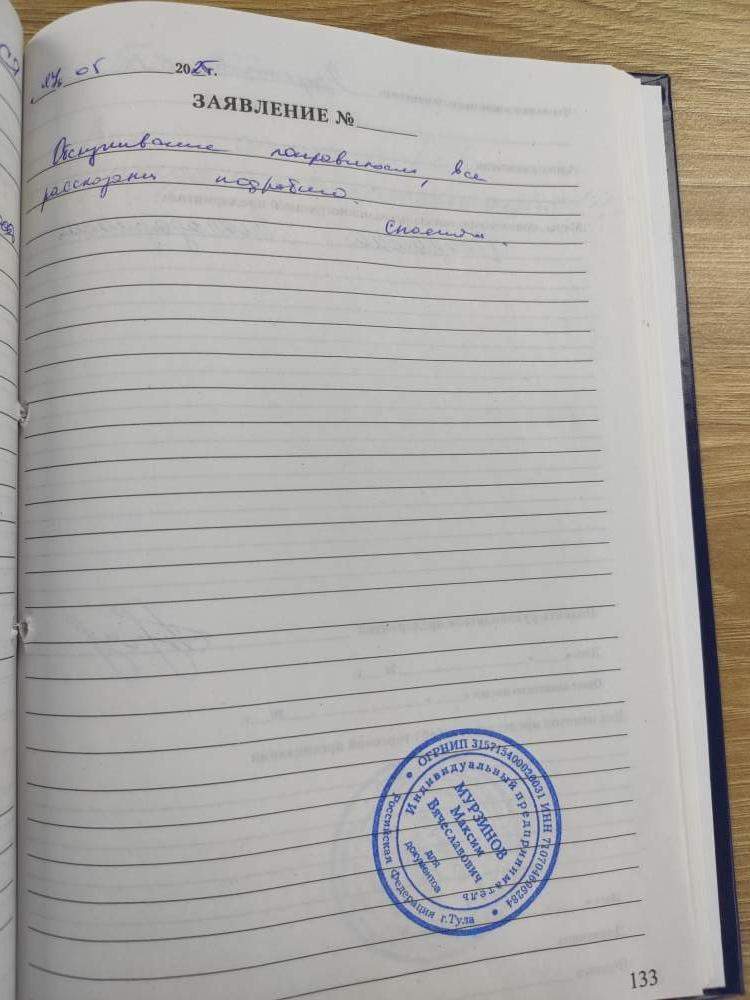 05 2025г.
ЗАЯВЛЕНИЕ №
Обслуживание понравилось, все
рассказали подробно.
Спасибо.
ОГРНИП 315715400020031 ИНН 710704606284
Российская Федерация г.Тула
Индивидуальный предприниматель
МУРЗИНОВ
Максим
Вячеславович
для
документов
133